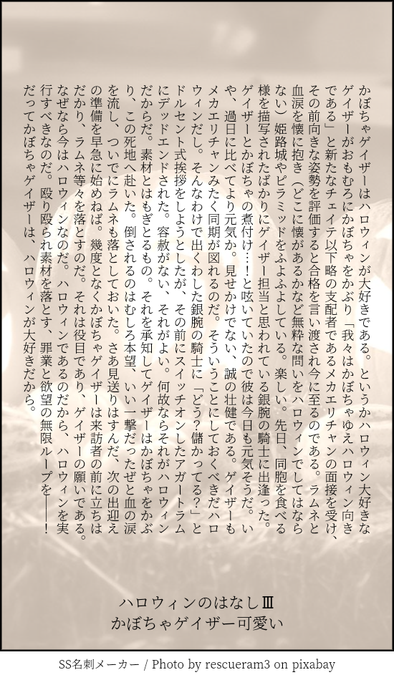 かぼちゃゲイザーはハロウィンが大好きである。というかハロウィン大好きな
ゲイザーがおもむろにかぼちゃをかぶり「我々はかぼちゃゆえハロウィン向き
である」と新たなチェイテ以下略の支配者であるメカエリチャンの面接を受け、
その前向きな姿勢を評価すると合格を言い渡され今に至るのである。ラムネと
血涙を懐に抱き（どこに懐があるかなど無粋な問いをハロウィンでしてはなら
ない）姫路城やピラミッドをふよふよしている。楽しい。先日、同胞を食べる
様を描写されたばかりにゲイザー担当と思われている銀腕の騎士に出逢った。
ゲイザーとかぼちゃの煮付け…！と呟いていたので彼は今日も元気そうだ。い
や、過日に比べてより元気か。見せかけでない、誠の壮健である。ゲイザーも
メカエリチャンみたく同期が図れるのだ。そういうことにしておくべきだハロ
ウィンだし。そんなわけで出くわした銀腕の騎士に「どう？儲かってる？」と
ドルセント式挨拶をしようとしたが、その前にスイッチオンしたアガートラム
にデッドエンドされた。容赦がない、それがよい。何故ならそれがハロウィン
だからだ。素材とはもぎとるもの。それを承知してゲイザーはかぼちゃをかぶ
り、この死地へ赴いた。倒されるのはむしろ本望、いい一撃だったぜと血の涙
を流し、ついでにラムネも落としておいた。さあ見送りはすんだ、次の出迎え
の準備を早急に始めねば。幾度となくかぼちゃゲイザーは来訪者の前に立ちは
だかり、ラムネ等々を落とすのだ。それは役目であり、ゲイザーの願いである。
なぜなら今はハロウィンなのだ。ハロウィンであるのだから、ハロウィンを実
行すべきなのだ。殴り殴られ素材を落とす、罪業と欲望の無限ループを――！
だってかぼちゃゲイザーは、ハロウィンが大好きだから。
ハロウィンのはなしⅢ
かぼちゃゲイザー可愛い
SS名刺メーカー / Photo by rescueram3 on pixabay